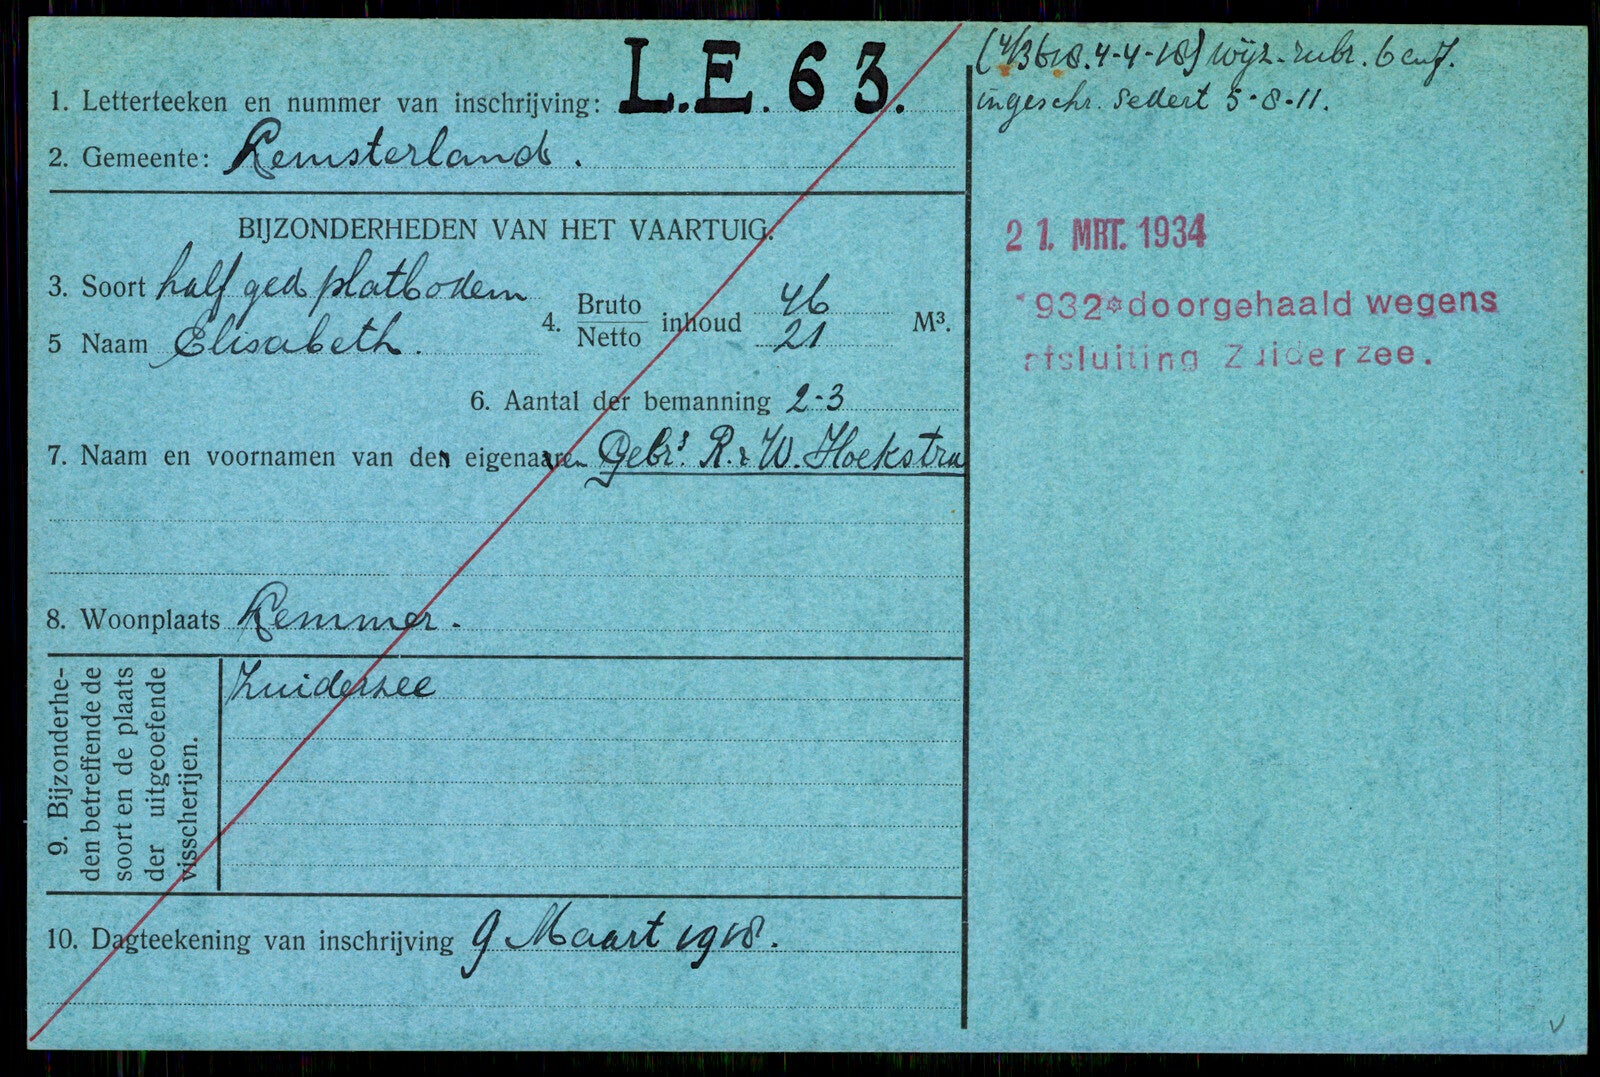 1. Letterteeken en nummer van inschrijving: L.E. 63.
2. Gemeente: Lemsterland.
BIJZONDERHEDEN VAN HET VAARTUIG.
3. Soort half ged platbodem
4. Bruto inhoud 46 M³.
Netto 21
5 Naam Elisabeth.
6. Aantal der bemanning 2-3
7. Naam en voornamen van den eigenaaren Gebrs. R. & W. Hoekstra
8. Woonplaats Lemmer.
9. Bijzonderhe-
den betreffende de
soort en de plaats
der uitgeoefende
visscherijen.
Zuiderzee
10. Dagteekening van inschrijving 9 Maart 1918.
(4/3618. 4-4-18) wijz. rubr. 6 en 7.
ingeschr. sedert 5-8-11.
21. MRT. 1934
1932*doorgehaald wegens
afsluiting Zuiderzee.